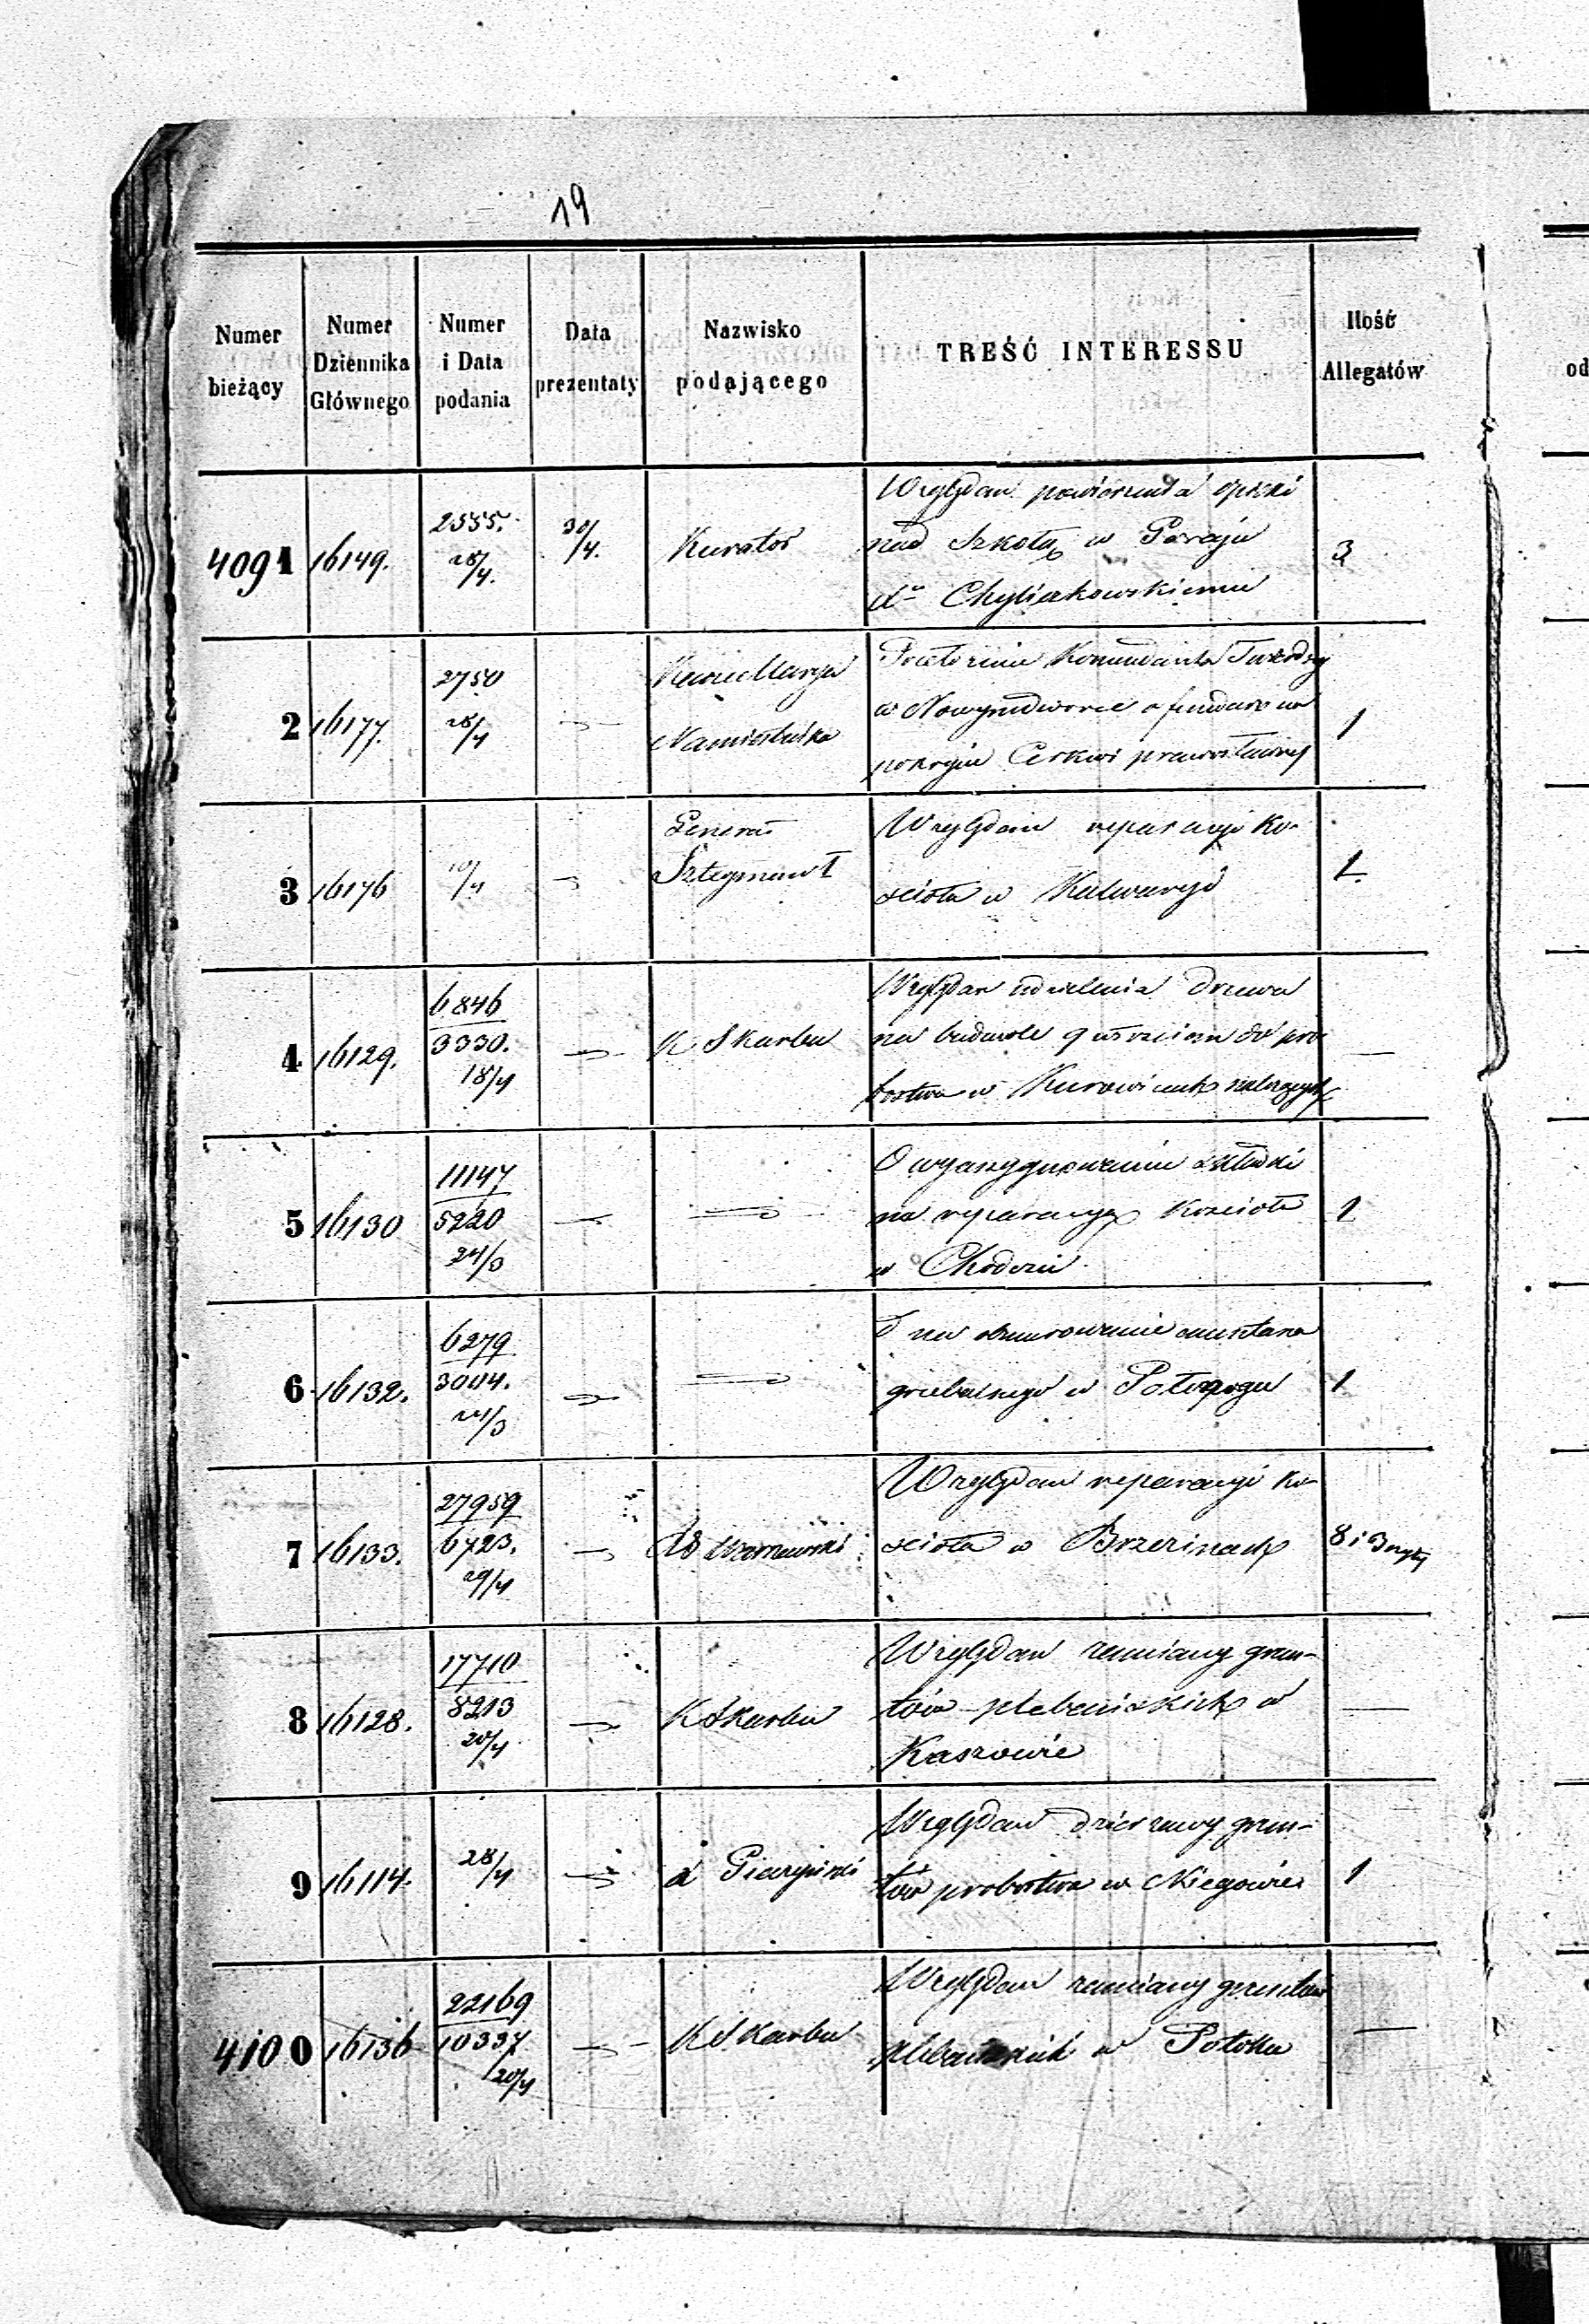 19
Numer bieżący
Numer Dziennika Głównego
Numer i Data podania
Data prezentaty
Nazwisko podającego
TREŚĆ INTERESSU
Ilość Allegatów
od
4091 16149. 2555. 28/4. 30/4. Kurator Względem powierzenia opieki 3
nad Szkołą w
2 16177. 2750 28/4 Namiestnika Komendanta Twierdzy 1
w Nowymdworze o fundusz na
pokrycie Cerkwi prawosławnej
3 16176 10/4 Generał Względem reparacyi Ko- 1.
ścioła w Kalwaryi
4 16129. 6846 3330. 18/4 K Skarbu Względem udzielenia drzewa —
na budowle do pro-
bostwa w Kurowicach należących
5 16130 11147 5220 24/3 O wyasygnowanie składki 1
na reparacyę Kościoła
w
6 16132. 6279 3004. 24/3 na obmurowanie cmentarza 1
grzebalnego w
7 16133. 27959 6723. 29/4 Względem reparacyi ko- 8 i 3
ścioła w Brzezinach
8 16128. 17710 8213 20/4 K Skarbu Względem zamiany grun- —
tów plebańskich w
Kaszowie
9 16114. 28/4 Względem dzierżawy grun- 1
tów probostwa w Niegowie
4100 16136 22169 10337 20/4 K Skarbu Względem zamiany gruntów —
plebańskich w Potoku